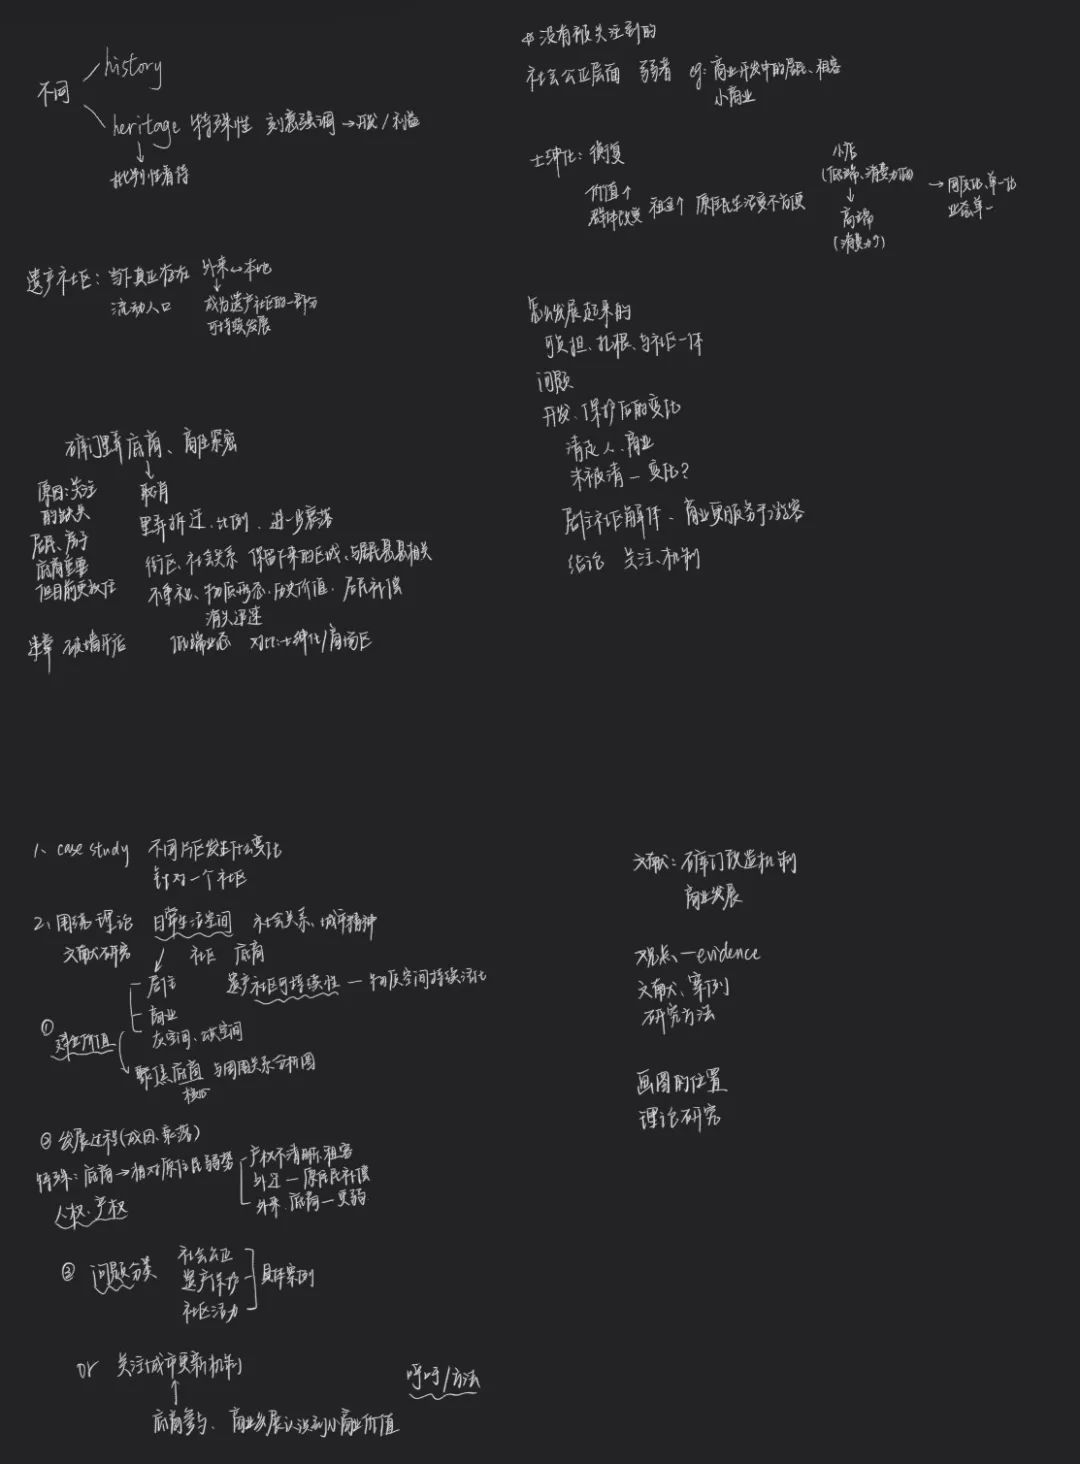 不同
history
heritage 特殊性 刻意强调 → 开发/利益
批判性看待
遗产社区：当下真正存在 外来↔本地
流动人口 成为遗产社区的一部分
可持续发展
石库门里弄底商、商住紧密
原因：关注
的缺失
取消
居民、房子
里弄拆迁、比例、进一步衰落
底商重要
街区、社会关系 保留下来的区域、与居民息息相关
但目前更权住
不事社、物质形态、历史价值、居民补偿
消失迅速
违章 破墙开店 低端业态 对比：士绅化/商场区
1、case study 不同片区发生什么变化
针对一个社区
2、围绕理论 日常生活空间 社会关系、城市精神
文献研究 社区 底商
居住 遗产社区可持续性 — 物质空间持续活化
商业
①
建立价值
灰空间、碎空间
聚焦底商 与周围关系分析图
② 发展过程(成因、衰落)
特殊：底商 → 相对原住民弱势
产权不清晰、租客
外迁 — 原居民补偿
外来、底商 — 更弱
人权、产权
③ 问题分类
社会公正
遗产保护 具体案例
社区活力
or 关注城市更新机制
呼吁/方法
底商参与、商业发展认识到小商业价值
* 没有被关注到的
社会公正层面 弱者 eg：商业开发中的居民、租客
小商业
士绅化：衡复
价值↑
群体改变 租金↑ 原住民生活变不方便
小店
(低端、消费力低)
→ 同质化、单一化
业态单一
↓
高端
(消费力↑)
怎么发展起来的
可负担、扎根、与社区一体
问题
开发、保护后的变化
清走人、商业
未被清 — 变化？
居住社区解体、商业更服务于游客
结论 关注、机制
文献：石库门改造机制
商业发展
观点、— evidence
文献、案例
研究方法
画图的位置
理论研究